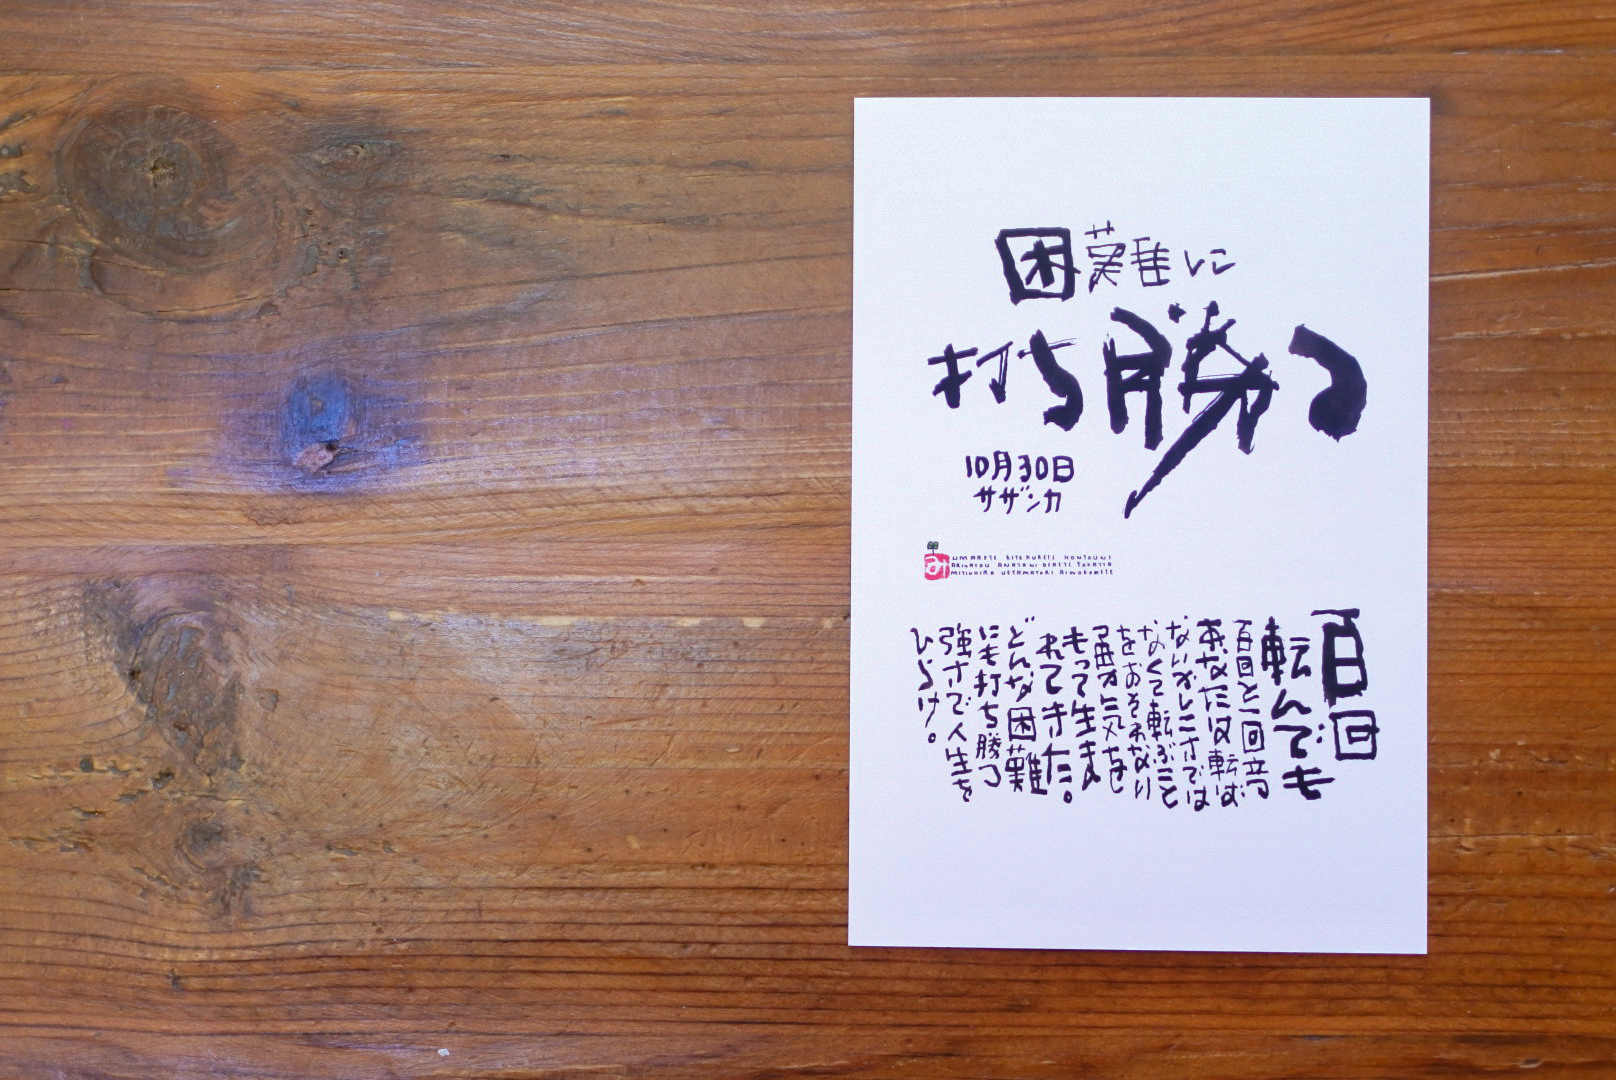 困難に
打ち勝つ
10月30日
サザンカ
み
UMARETE KITEKURETE HONTOUNI
ARIGATOU ANATANI DEAETE YOKATTA
MITSUHIRO AIWOKOMETE
百回
転んでも
百回と一回立つ
あなたは転ば
ないかしこさでは
なくて転ぶこと
をおそれない
勇気を
もって生ま
れてきた。
どんな困難
にも打ち勝つ
強さで人生を
ひらけ。